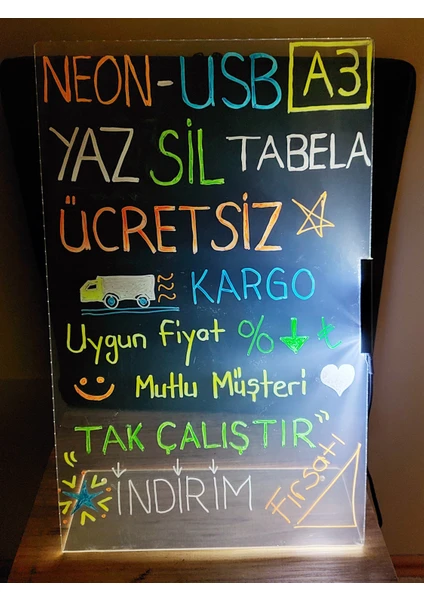 NEON-USB A3
YAZ SİL TABELA
ÜCRETSİZ
KARGO
Uygun Fiyat % ₺
Mutlu Müşteri
"TAK ÇALIŞTIR"
İNDİRİM Fırsatı